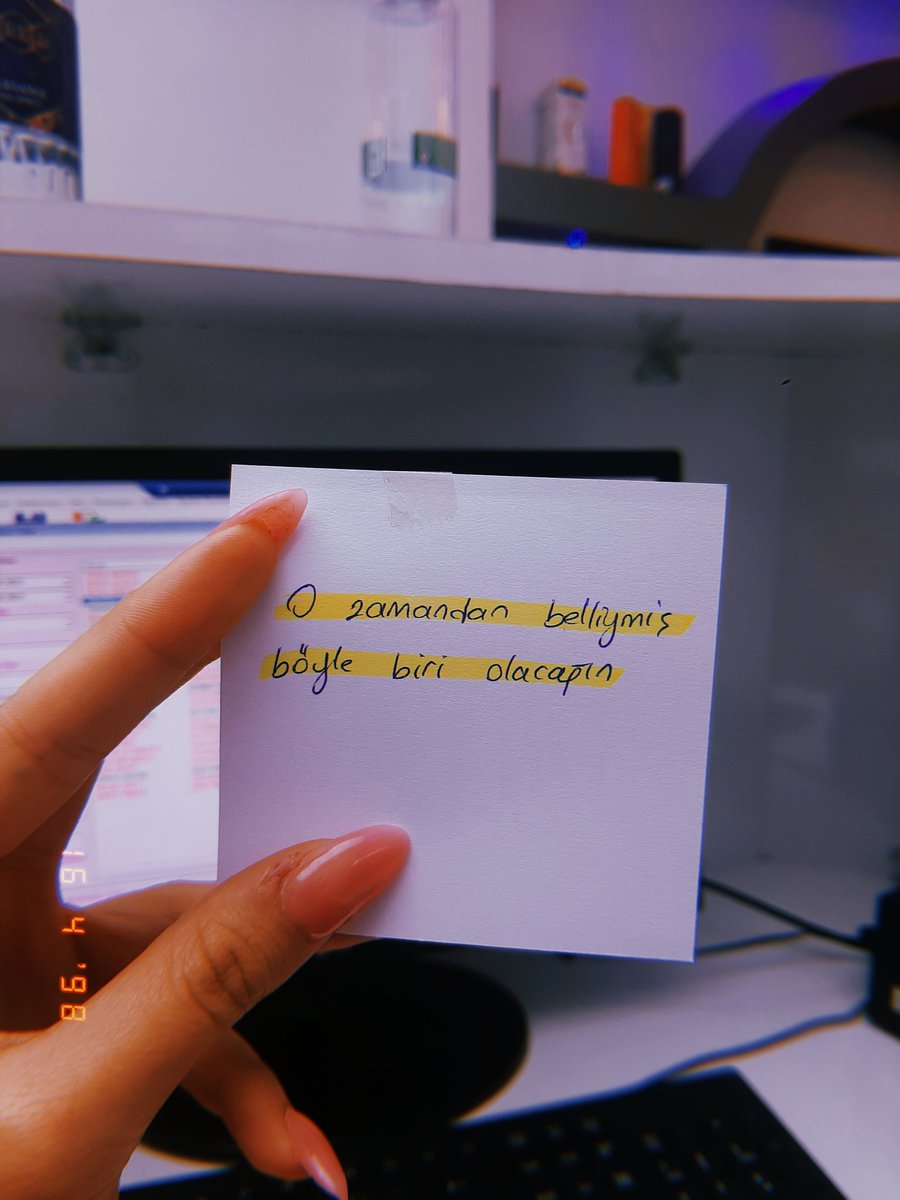 O zamandan belliymiş
böyle biri olacağın
16 4 '98